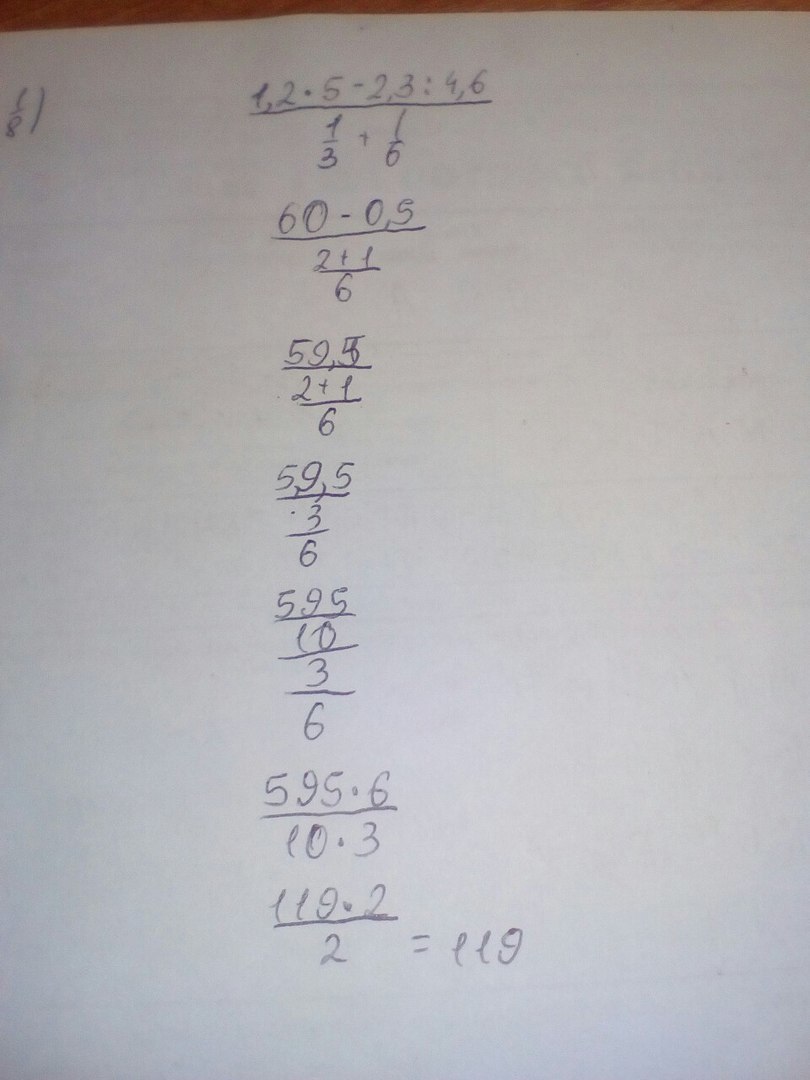 1/8)
1,2·5-2,3:4,6
1/3 + 1/6
60-0,5
2+1
6
59,5
2+1
6
59,5
3
6
595
10
3
6
595·6
10·3
119·2
2
= 119